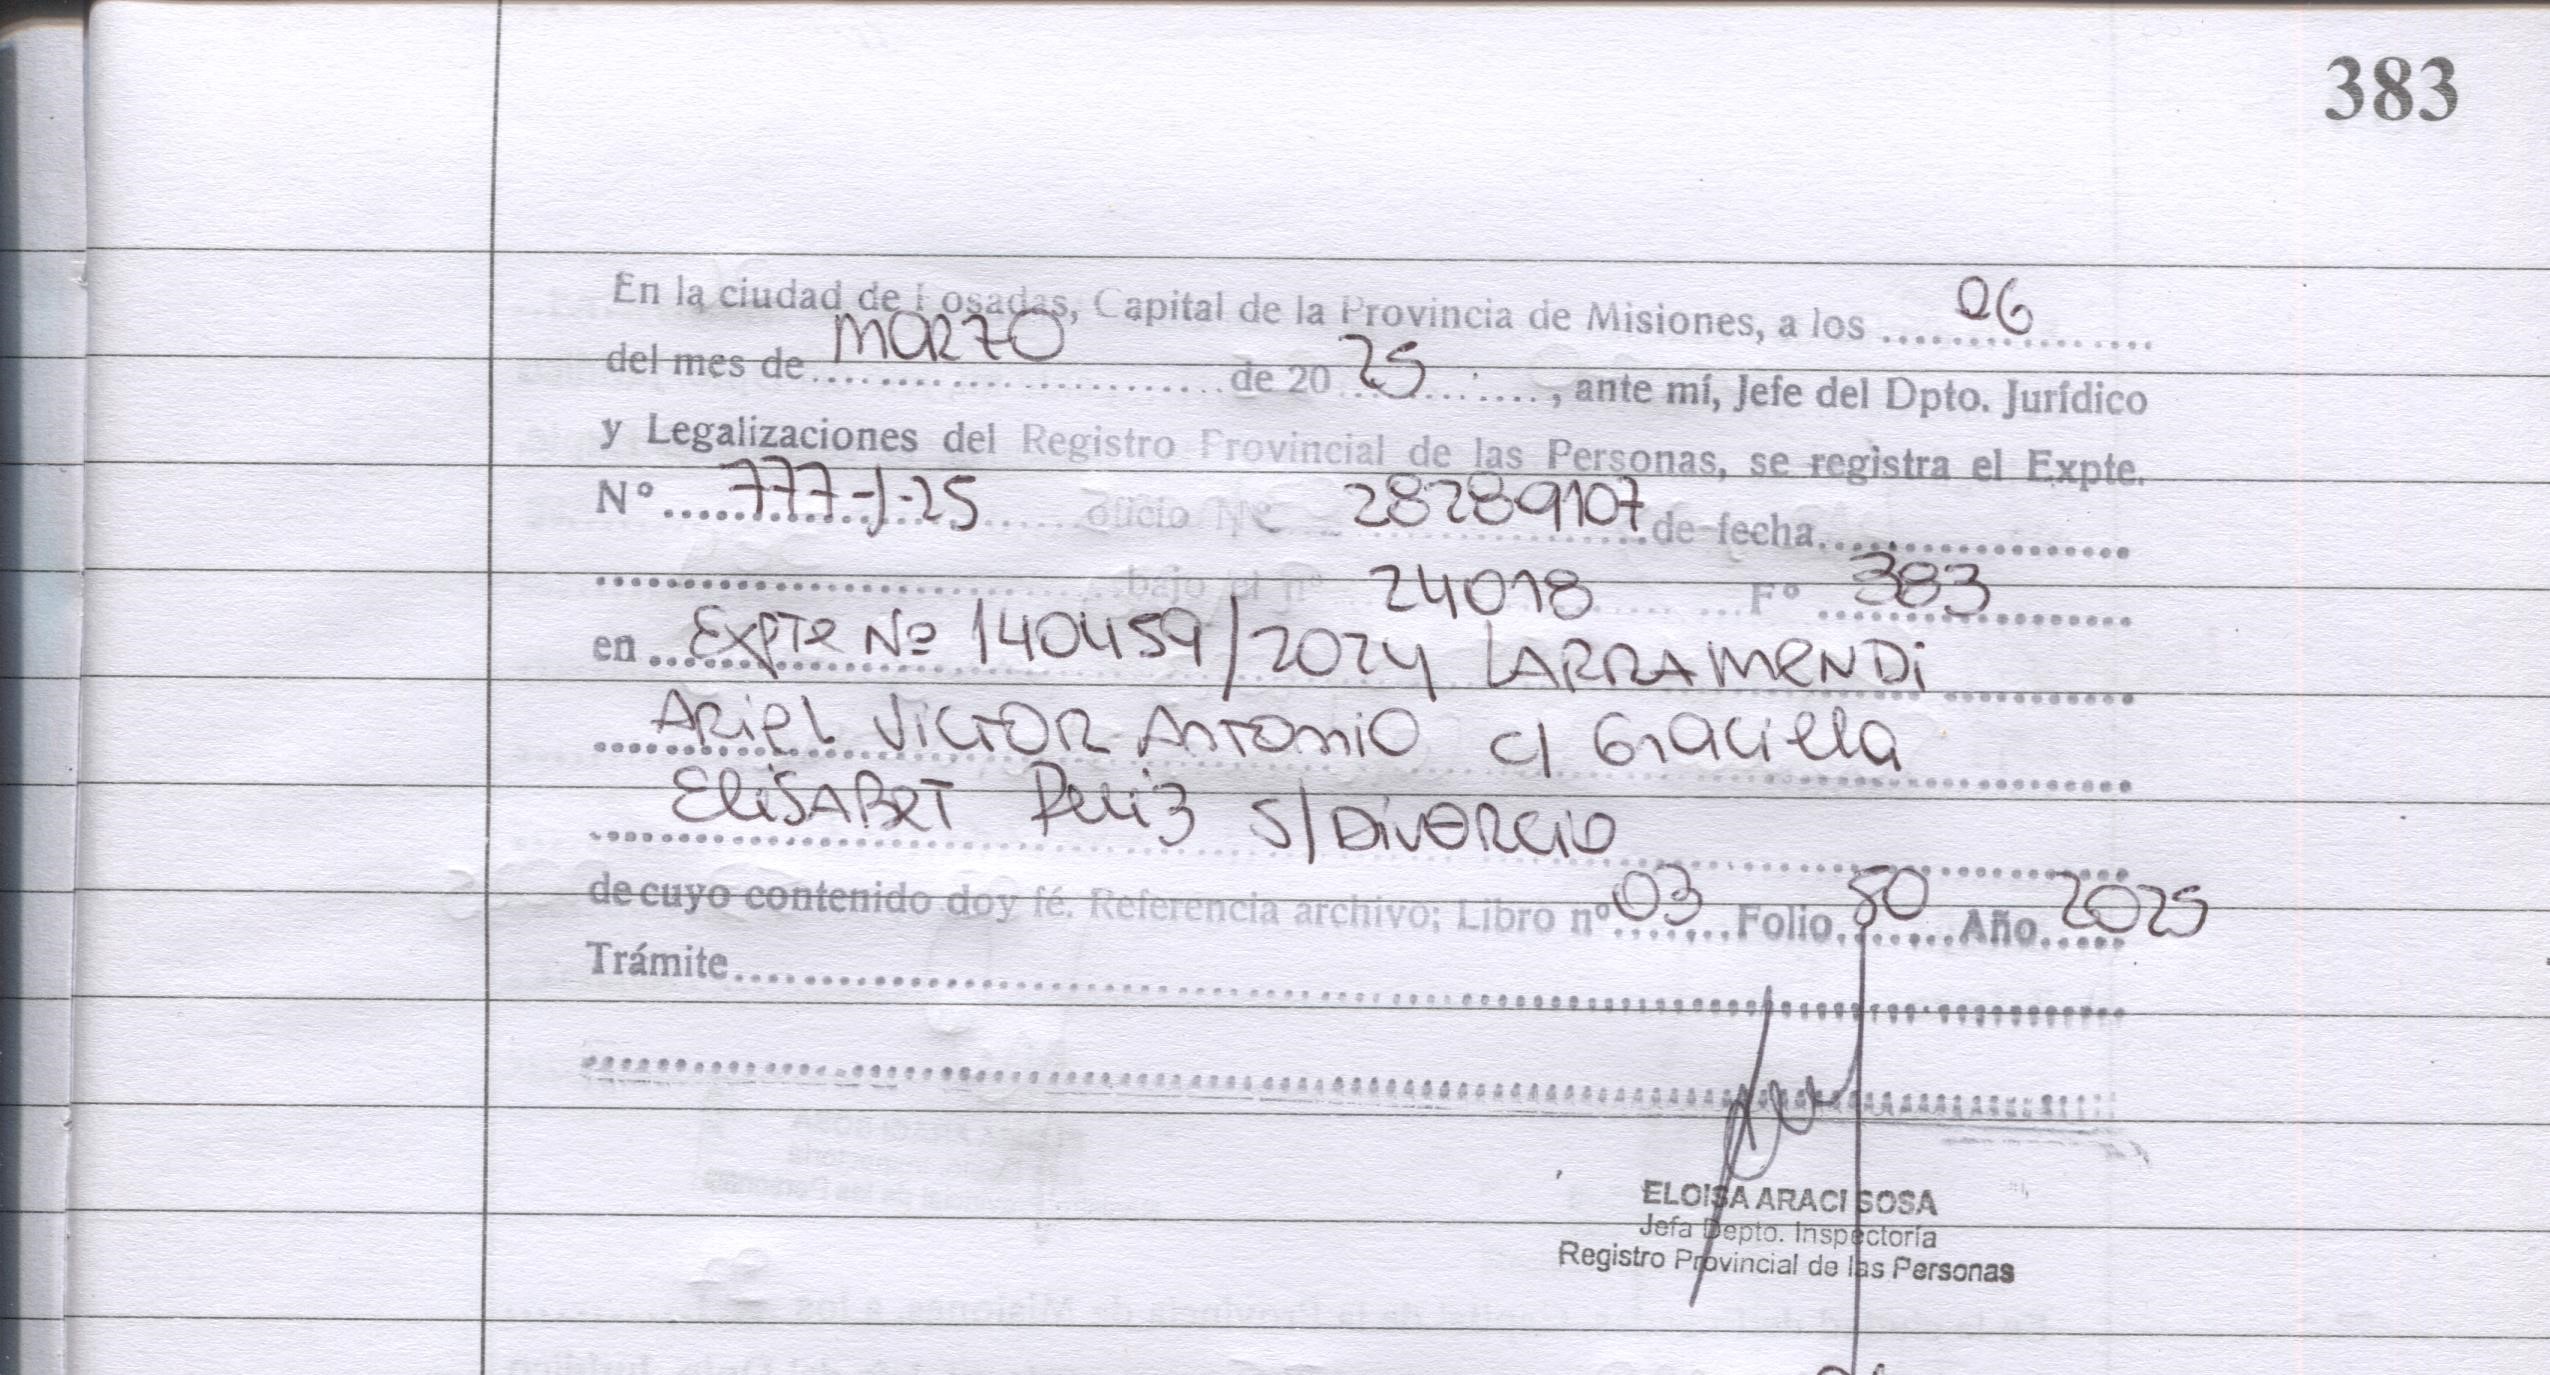 383
En la ciudad de Posadas, Capital de la Provincia de Misiones, a los 06
del mes de MARZO de 20 25, ante mí, Jefe del Dpto. Jurídico
y Legalizaciones del Registro Provincial de las Personas, se registra el Expte.
Nº 777-J-25 oficio Nº 28289107 de fecha
bajo el nº 24018 Fº 383
en Expte Nº 140459/2024 LARRAMENDI
ARIEL VICTOR ANTONIO c/ Graciella
ELISABET Ruiz S/DIVORCIO
de cuyo contenido doy fé. Referencia archivo; Libro nº 03 Folio 50 Año 2025
Trámite
ELOISA ARACI SOSA
Jefa Depto. Inspectoría
Registro Provincial de las Personas